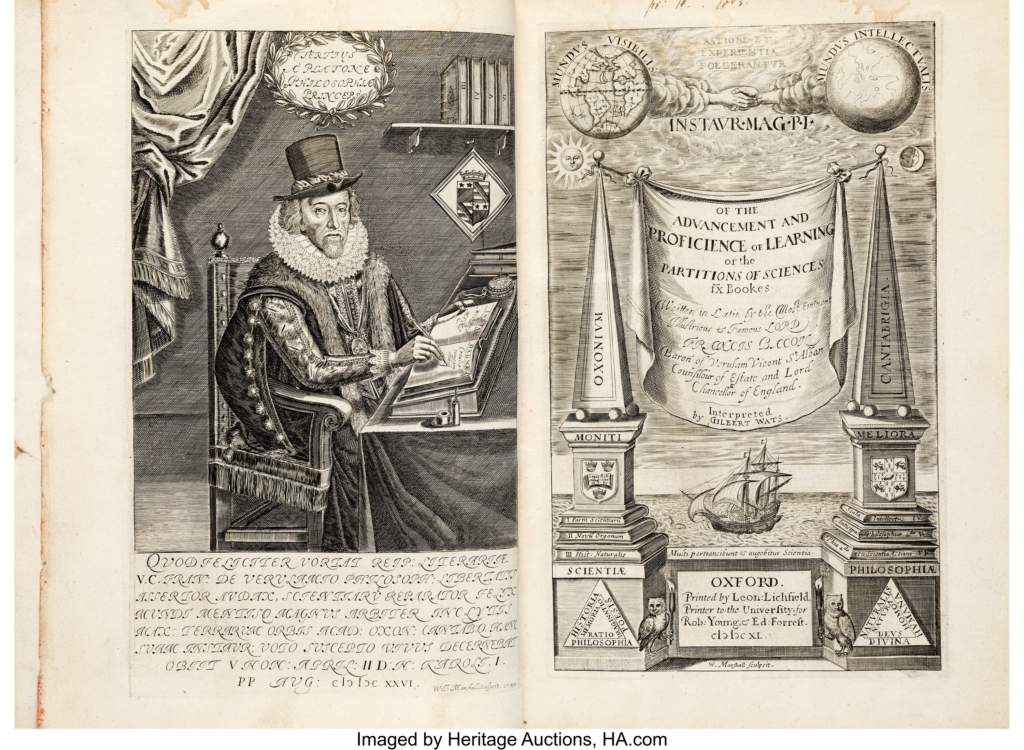 TERTIUS
A PLATONE
PHILOSOPHIÆ
PRINCEPS
QUOD FELICITER VORTAT REIP: LITERARIÆ
V.C. FRAN: DE VERULAMIO PHILOSOPH: LIBERTATIS
ASSERTOR AUDAX, SCIENTIARU REPARATOR FELIX
MUNDI MENTISQ MAGNUS ARBITER INCLYTIS
MAX: TERRARUM ORBIS ACAD: OXON: CANTABQ HANC
SUAM INSTAUR: VOTO SUSCEPTO VIVUS DECERNEBAT
OBIIT V NON: APRIL: II D: N: KAROLI I.
PP AUG: CIƆ IƆC XXVI.
MUNDUS VISIBILIS
RATIONE ET
EXPERIENTIA
FOEDERANTUR
MUNDUS INTELLECTUALIS
INSTAUR·MAG·P·I·
OF THE
ADVANCEMENT AND
PROFICIENCE OF LEARNING
or the
PARTITIONS OF SCIENCES
IX Bookes
Written in Latin by the Most Eminent
Illustrious & Famous LORD
FRANCIS BACON
Baron of Verulam Vicont St Alban
Counsilour of Estate and Lord
Chancellor of England.
Interpreted
by GILBERT WATS.
OXONIUM
CANTABRIGIA
MONITI
MELIORA
I Partit Scientiarū
II Novū Organum
III Hist: Naturalis
Multi pertransibunt & augebitur Scientia
SCIENTIÆ
PHILOSOPHIÆ
HISTORIA
RATIO
PHILOSOPHIA
DEUS
DIVINA
OXFORD.
Printed by Leon: Lichfield
Printer to the University, for
Rob: Young & Ed: Forrest.
CIƆ IƆC XL.
W. Marshall sculpsit.
Imaged by Heritage Auctions, HA.com